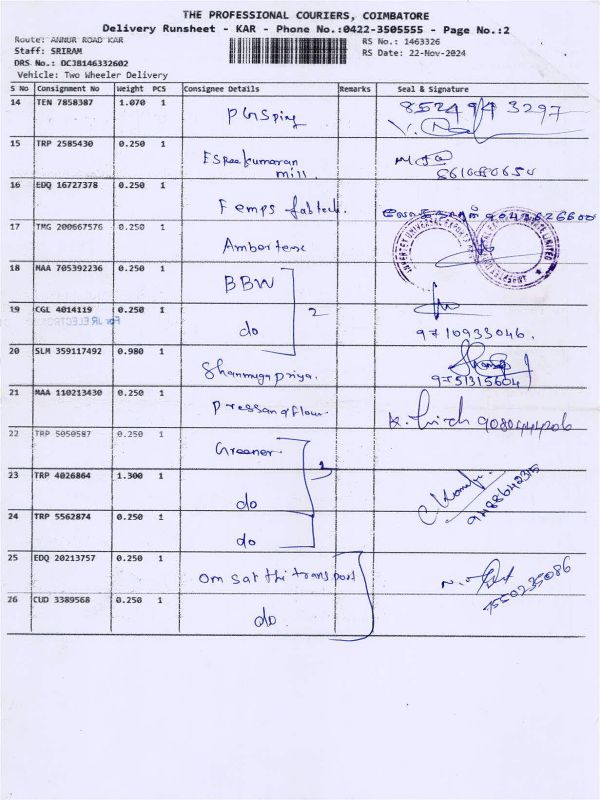 THE PROFESSIONAL COURIERS, COIMBATORE
Delivery Runsheet - KAR - Phone No.:0422-3505555 - Page No.:2
Route: ANNUR ROAD KAR RS No.: 1463326
Staff: SRIRAM RS Date: 22-Nov-2024
DRS No.: DCJB146332602
Vehicle: Two Wheeler Delivery
S No Consignment No Weight PCS Consignee Details Remarks Seal & Signature
14 TEN 7858387 1.070 1
15 TRP 2585430 0.250 1
mill.
16 EDQ 16727378 0.250 1
Femps fabtech.
17 TMG 200667576 0.250 1
18 MAA 705392236 0.250 1
BBW
19 CGL 4014119 0.250 1
do 2
9710933046.
20 SLM 359117492 0.980 1
Shanmuga priya.
9751315604
21 MAA 110213430 0.250 1
22 TRP 5050587 0.250 1
Greener
23 TRP 4026864 1.300 1
do 3
9488642315
24 TRP 5562874 0.250 1
do
25 EDQ 20213757 0.250 1
Om sakthi transport
7550235086
26 CUD 3389568 0.250 1
do